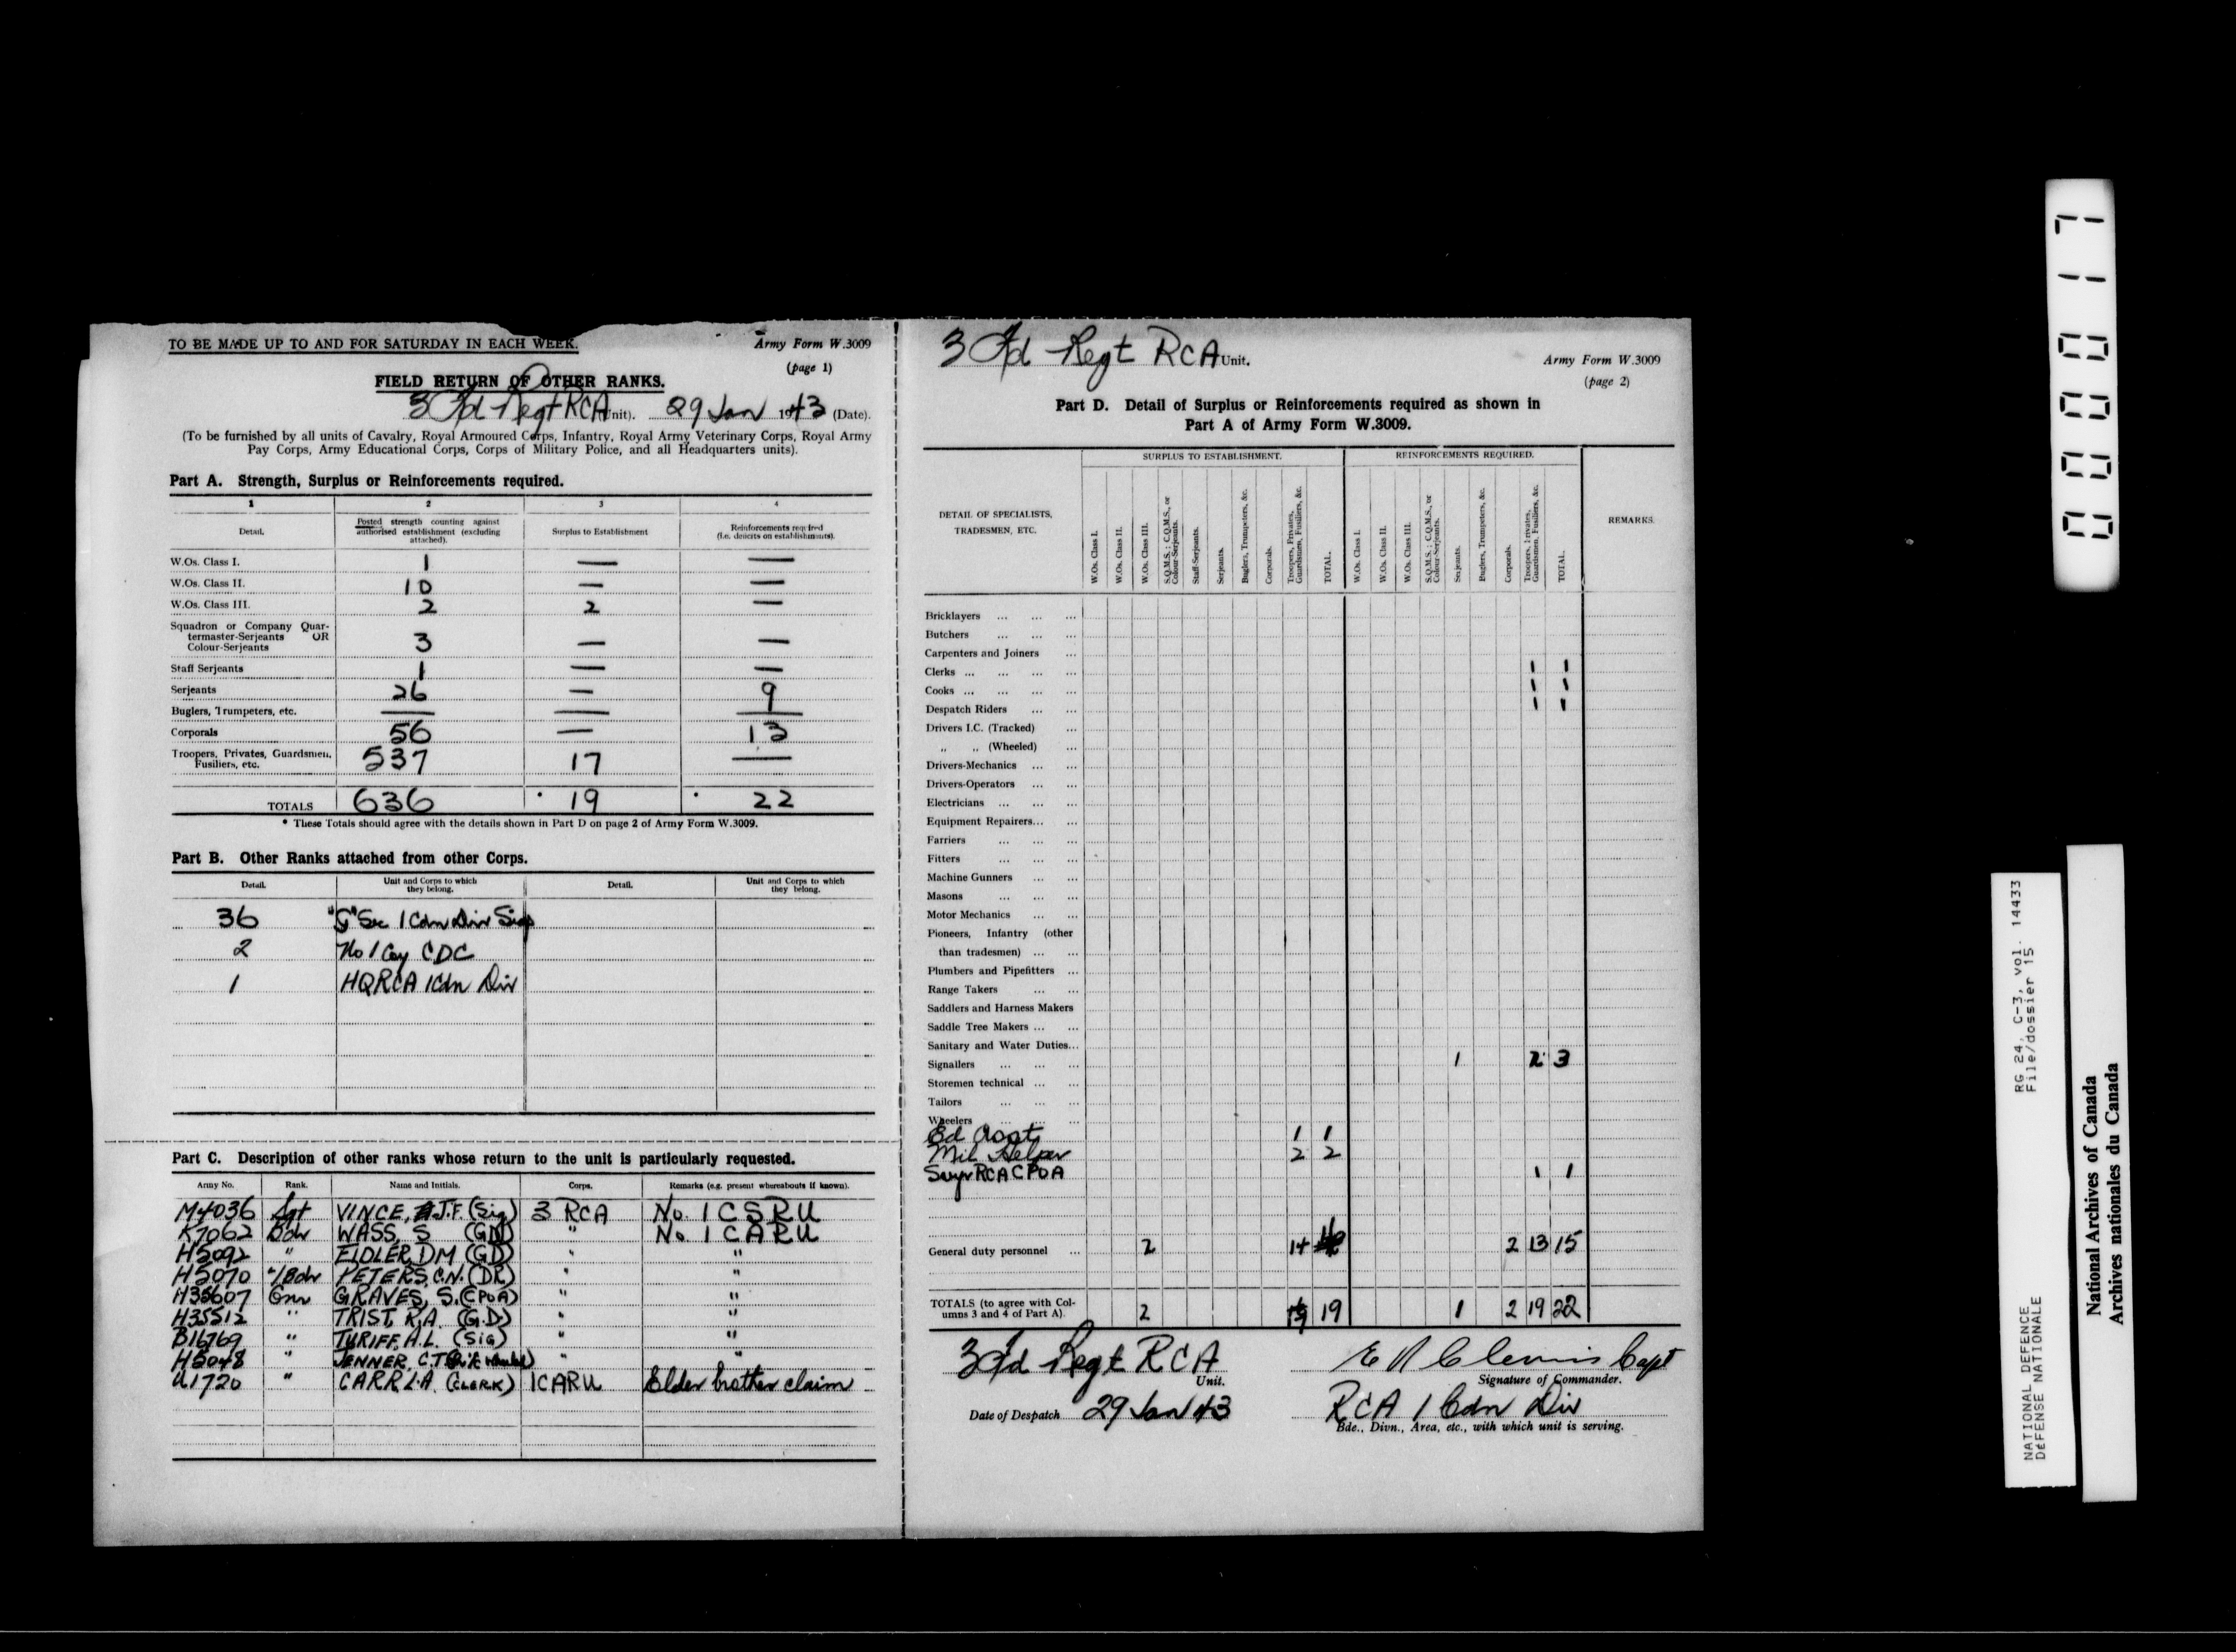 TO BE MADE UP TO AND FOR SATURDAY IN EACH WEEK.
Army Form W.3009
(page 1)
FIELD RETURN OF OTHER RANKS.
3 Fd Regt RCA (Unit). 29 Jan 1943 (Date).
(To be furnished by all units of Cavalry, Royal Armoured Corps, Infantry, Royal Army Veterinary Corps, Royal Army
Pay Corps, Army Educational Corps, Corps of Military Police, and all Headquarters units).
Part A. Strength, Surplus or Reinforcements required.
1 2 3 4
Detail. Posted strength counting against authorised establishment (excluding attached). Surplus to Establishment Reinforcements required (i.e. deficits on establishments).
W.Os. Class I. 1 — —
W.Os. Class II. 10 — —
W.Os. Class III. 2 2 —
Squadron or Company Quar-
termaster-Serjeants OR
Colour-Serjeants 3 — —
Staff Serjeants 1 — —
Serjeants 26 — 9
Buglers, Trumpeters, etc. — — —
Corporals 56 — 13
Troopers, Privates, Guardsmen,
Fusiliers, etc. 537 17 —
TOTALS 636 * 19 * 22
* These Totals should agree with the details shown in Part D on page 2 of Army Form W.3009.
Part B. Other Ranks attached from other Corps.
Detail. Unit and Corps to which they belong. Detail. Unit and Corps to which they belong.
36 Sec 1 Cdn Div Sigs
2 No 1 Coy CDC
1 HQRCA 1 Cdn Div
Part C. Description of other ranks whose return to the unit is particularly requested.
Army No. Rank. Name and Initials. Corps. Remarks (e.g. present whereabouts if known).
M4036 Sgt VINCE, J.F. (Sig) 3 RCA No. 1 CSRU
K7062 Bdr WASS, S (GD) " No. 1 CARU
H5092 " EIDLER, DM (GD) " "
H5070 L/Bdr PETERS, C.N. (DR) " "
H35607 Gnr GRAVES, S. (CPOA) " "
H35512 " TRIST, R.A. (G.D.) " "
B16769 " TURIFF, A.L. (Sig) " "
H5048 " JENNER, C.T. " "
U1720 " CARR L.A. (CLERK) 1CARU Elder brother claim
3 Fd Regt RCA Unit.
Army Form W.3009
(page 2)
Part D. Detail of Surplus or Reinforcements required as shown in
Part A of Army Form W.3009.
DETAIL OF SPECIALISTS,
TRADESMEN, ETC.
SURPLUS TO ESTABLISHMENT.
REINFORCEMENTS REQUIRED.
REMARKS.
W.Os. Class I.
W.Os. Class II.
W.Os. Class III.
S.Q.M.S.; C.Q.M.S., or Colour-Serjeants.
Staff-Serjeants.
Serjeants.
Buglers, Trumpeters, &c.
Corporals.
Troopers, Privates, Guardsmen, Fusiliers, &c.
TOTAL.
W.Os. Class I.
W.Os. Class II.
W.Os. Class III.
S.Q.M.S.; C.Q.M.S., or Colour-Serjeants.
Serjeants.
Buglers, Trumpeters, &c.
Corporals.
Troopers, Privates, Guardsmen, Fusiliers, &c.
TOTAL.
Bricklayers ... ... ...
Butchers ... ... ...
Carpenters and Joiners ...
Clerks ... ... ... ... 1 1
Cooks ... ... ... ... 1 1
Despatch Riders ... ... 1 1
Drivers I.C. (Tracked) ...
,, ,, (Wheeled) ...
Drivers-Mechanics ... ...
Drivers-Operators ... ...
Electricians ... ... ...
Equipment Repairers... ...
Farriers ... ... ...
Fitters ... ... ...
Machine Gunners ... ...
Masons ... ... ...
Motor Mechanics ... ...
Pioneers, Infantry (other
than tradesmen) ... ...
Plumbers and Pipefitters ...
Range Takers ... ...
Saddlers and Harness Makers
Saddle Tree Makers ... ...
Sanitary and Water Duties...
Signallers ... ... ... 1 2 3
Storemen technical ... ...
Tailors ... ... ...
Wheelers ... ...
Ed Asst 1 1
Mil Helper 2 2
Suyr RCA CPOA 1 1
General duty personnel ... 2 14 16 2 13 15
TOTALS (to agree with Col-
umns 3 and 4 of Part A). 2 19 1 2 19 22
3 Fd Regt RCA
Unit.
Capt
Signature of Commander.
Date of Despatch 29 Jan 43
RCA 1 Cdn Div
Bde., Divn., Area, etc., with which unit is serving.
000017
RG 24, C-3, vol. 14433
File/dossier 15
NATIONAL DEFENCE
DéFENSE NATIONALE
National Archives of Canada
Archives nationales du Canada